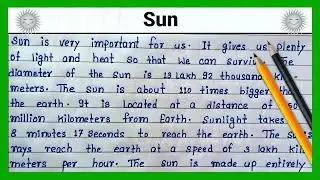 Sun
Sun is very important for us. It gives us plenty
of light and heat so that we can survive. The
diameter of the sun is 13 lakh 92 thousand kilo-
meters. The sun is about 110 times bigger than
the earth. It is located at a distance of
million kilometers from Earth. Sunlight takes
8 minutes 17 seconds to reach the earth. The Sun's
rays reach the earth at a speed of 3 lakh kilo
meters per hour. The sun is made up entirely